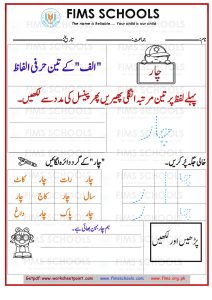 FIMS SCHOOLS
The name is Reliable.... Your child is our child
نام: جماعت: تاریخ:
"الف" کے تین حرفی الفاظ
چار
پہلے لفظ پر تین مرتبہ انگلی پھیریں پھر پینسل کی مدد سے لکھیں۔
چار
خالی جگہ پُر کریں۔
"چار" کے گرد دائرہ لگائیں
چار رات چار کاٹ
سال چار کاج چار
چار پاک چار داغ
پڑھیں اور لکھیں
ہم چار بہن بھائی ہے۔
www.fimsschools.com
www.fims.org.pk